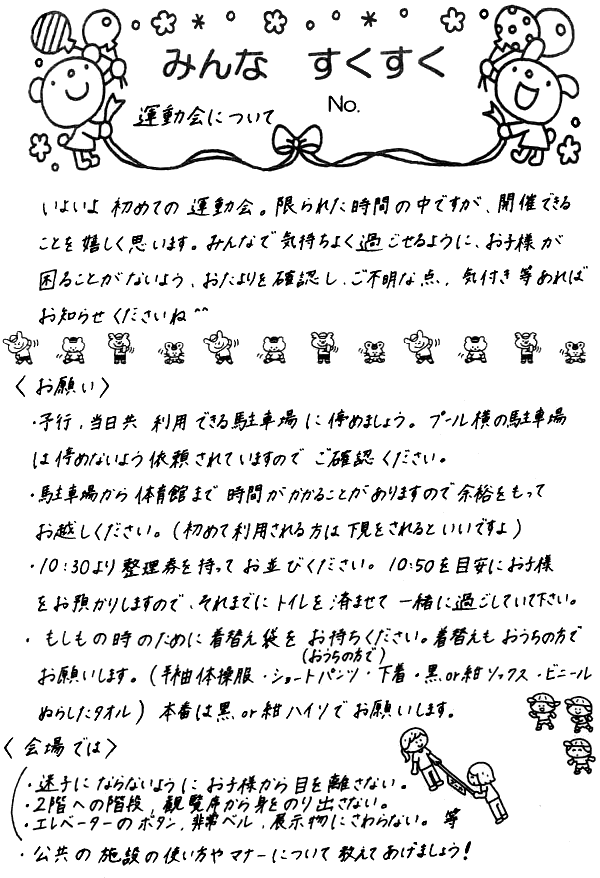 みんな すくすく
No.
運動会について
いよいよ 初めての 運動会。限られた時間の中ですが、開催できる
ことを嬉しく思います。みんなで気持ちよく過ごせるように、お子様が
困ることがないよう、おたよりを確認し、ご不明な点、気付き等あれば
お知らせくださいね^^
〈お願い〉
・予行、当日共 利用できる駐車場に停めましょう。プール横の駐車場
は停めないよう依頼されていますので ご確認ください。
・駐車場から体育館まで 時間がかかることがありますので余裕をもって
お越しください。(初めて利用される方は下見をされるといいですよ)
・10:30より整理券を持ってお並びください。10:50を目安にお子様
をお預かりしますので、それまでにトイレを済ませて 一緒に過ごしていて下さい。
・もしもの時のために着替え袋を お持ちください。着替えも おうちの方で
お願いします。(半袖体操服・ショートパンツ・下着・黒or紺ソックス・ビニール
(おうちの方で)
ぬらしたタオル) 本番は黒or紺ハイソでお願いします。
〈会場では〉
・迷子にならないようにお子様から目を離さない。
・2階への階段、観覧席から身をのり出さない。
・エレベーターのボタン、非常ベル、展示物にさわらない。等
・公共の施設の使い方やマナーについて教えてあげましょう!